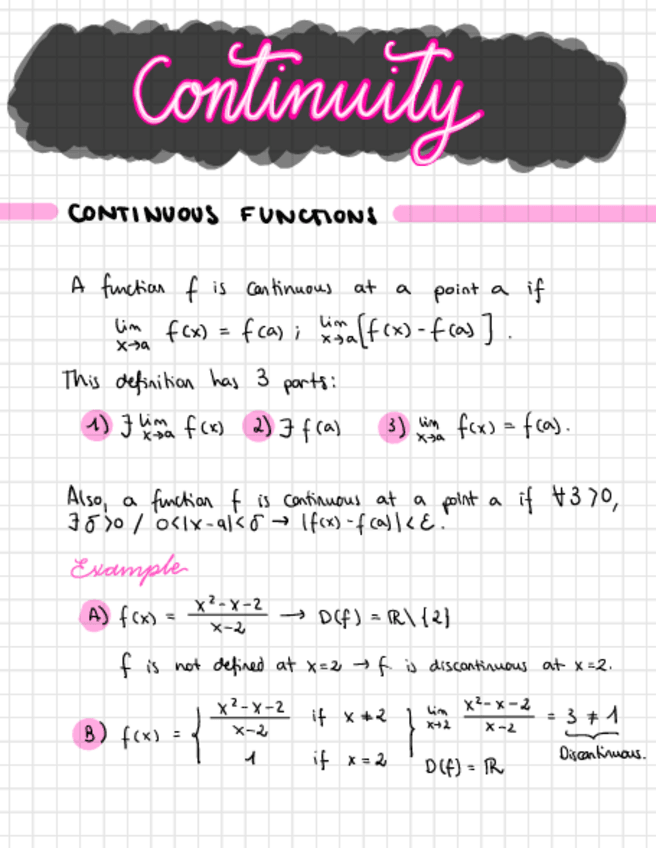 Continuity
CONTINUOUS FUNCTIONS
A function f is continuous at a point a if
lim x→a f(x) = f(a) ; lim x→a [f(x) - f(a)] .
This definition has 3 parts:
1) ∃ lim x→a f(x) 2) ∃ f(a) 3) lim x→a f(x) = f(a).
Also, a function f is continuous at a point a if ∀3>0,
∃ δ>0 / 0<|x-a|<δ → |f(x)-f(a)|<ε.
Example
A) f(x) = (x²-x-2)/(x-2) → D(f) = ℝ\{2}
f is not defined at x=2 → f is discontinuous at x=2.
B) f(x) = { (x²-x-2)/(x-2) if x≠2 } lim x→2 (x²-x-2)/(x-2) = 3 ≠ 1
1 if x=2 D(f) = ℝ Discontinuous.